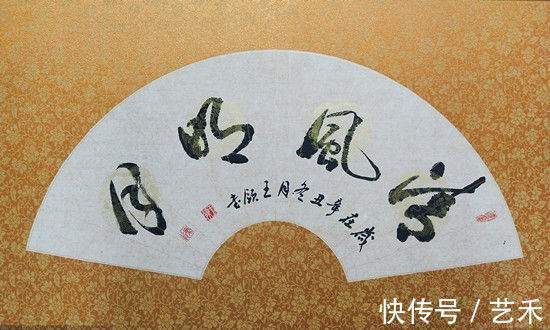 高風明月
歲在辛丑冬月王
快传号 / 艺禾